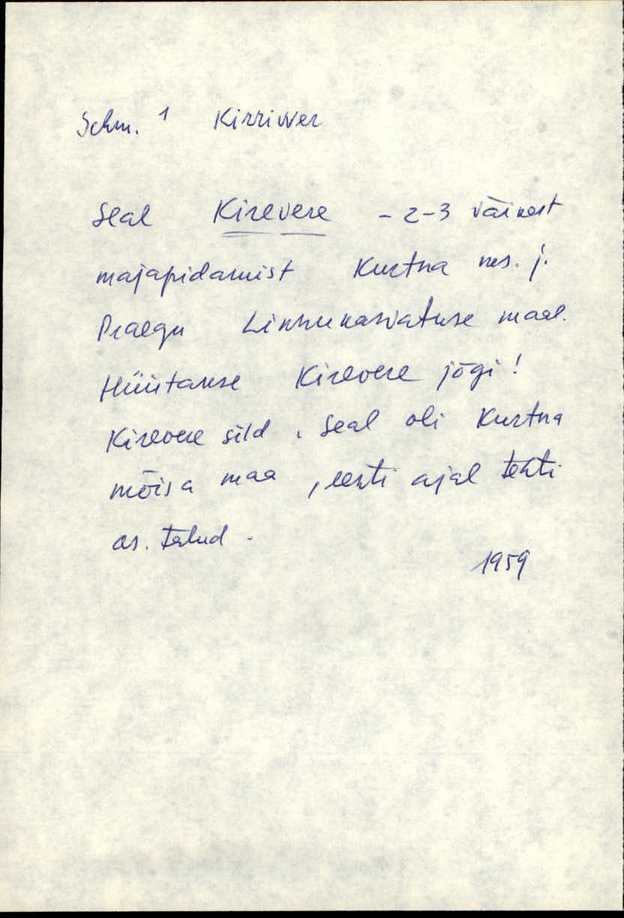 Schm. 1 Kirriwer
Seal Kirevere - 2-3 väikest
majapidamist Kurtna
Praegu Linnukasvatuse maal.
Hüütakse Kirevere jõgi!
Kirevere sild. Seal oli Kurtna
mõisa maa, eesti ajal tehti
as. talud.
1959